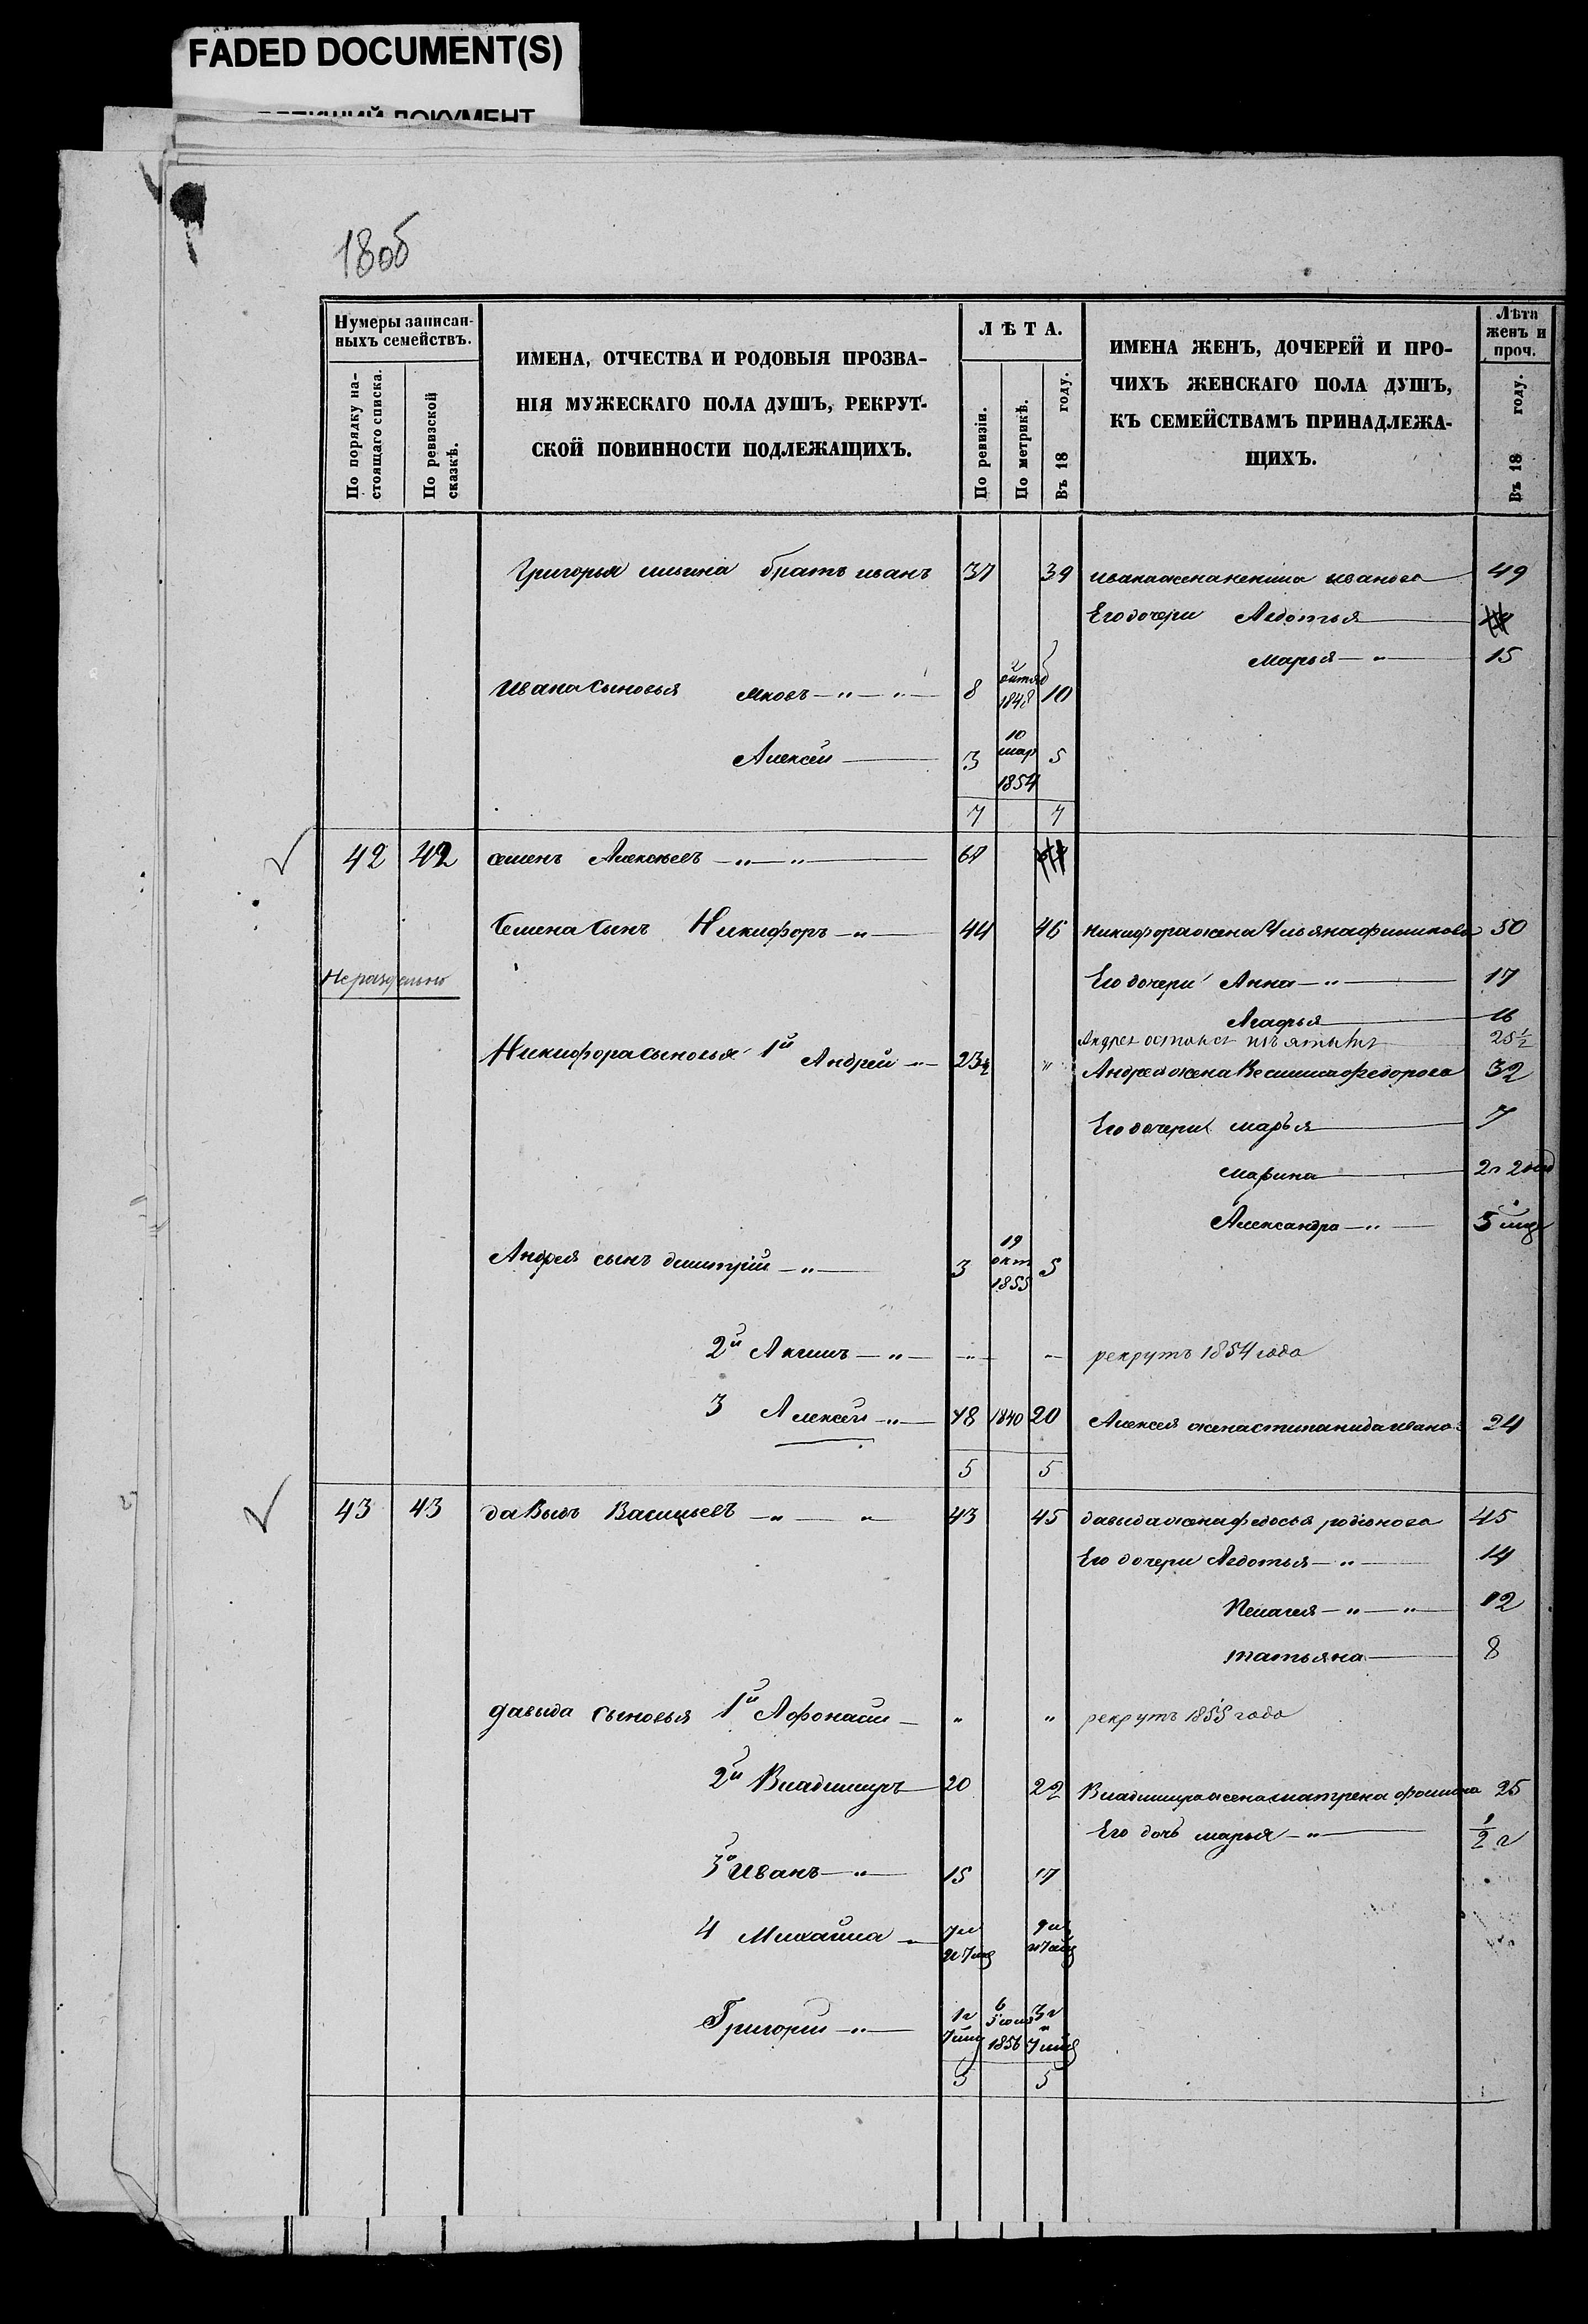 FADED DOCUMENT(S)
ДОКУМЕНТ
18об
Нумеры записан-
ныхъ семействъ.
По порядку на-
стоящаго списка.
По ревизской
сказкѣ.
ИМЕНА, ОТЧЕСТВА И РОДОВЫЯ ПРОЗВА-
НІЯ МУЖЕСКАГО ПОЛА ДУШЪ, РЕКРУТ-
СКОЙ ПОВИННОСТИ ПОДЛЕЖАЩИХЪ.
ЛѢТА.
По ревизіи.
По метрикѣ.
Въ 18 году.
ИМЕНА ЖЕНЪ, ДОЧЕРЕЙ И ПРО-
ЧИХЪ ЖЕНСКАГО ПОЛА ДУШЪ,
КЪ СЕМЕЙСТВАМЪ ПРИНАДЛЕЖА-
ЩИХЪ.
Лѣта
женъ и
проч.
Въ 18 году.
Григорья ильина братъ иванъ 37 39 ивана жена иванова 49
Его дочери Авдотья
марья 15
Ивана сыновья яковъ 8 1848 10
Алексей 3 10 мар 1854 5
7 7
42 42 семенъ Алексеевъ 67
Семена сынъ Никифоръ 44 46 никифора жена Ульяна 50
Нераздельно
Его дочери Анна 17
Агафья 16
25 1/2
Никифора сыновья 1й Андрей 23 1/2 " Андрея жена федорова 32
Его дочери марья 7
марина
Александра
Андрея сынъ дмитрий 3 19 окт 1855 5
2й Акимъ рекрутъ 1854 года
3 Алексей 18 1840 20 Алексея жена степанида ивано 24
5 5
43 43 давыдъ Васильевъ 43 45 давыда жена федосья родионова 45
Его дочери Авдотья 14
Пелагея 12
татьяна 8
давыда сыновья 1й Афонасий " " рекрутъ 1855 года
2й Владимиръ 20 22 Владимира жена матрена фомина 25
Его дочь марья 1/2 г
3й Иванъ 15 17
4 Михайла
Григорий 1г 6 1856 3г
5 5